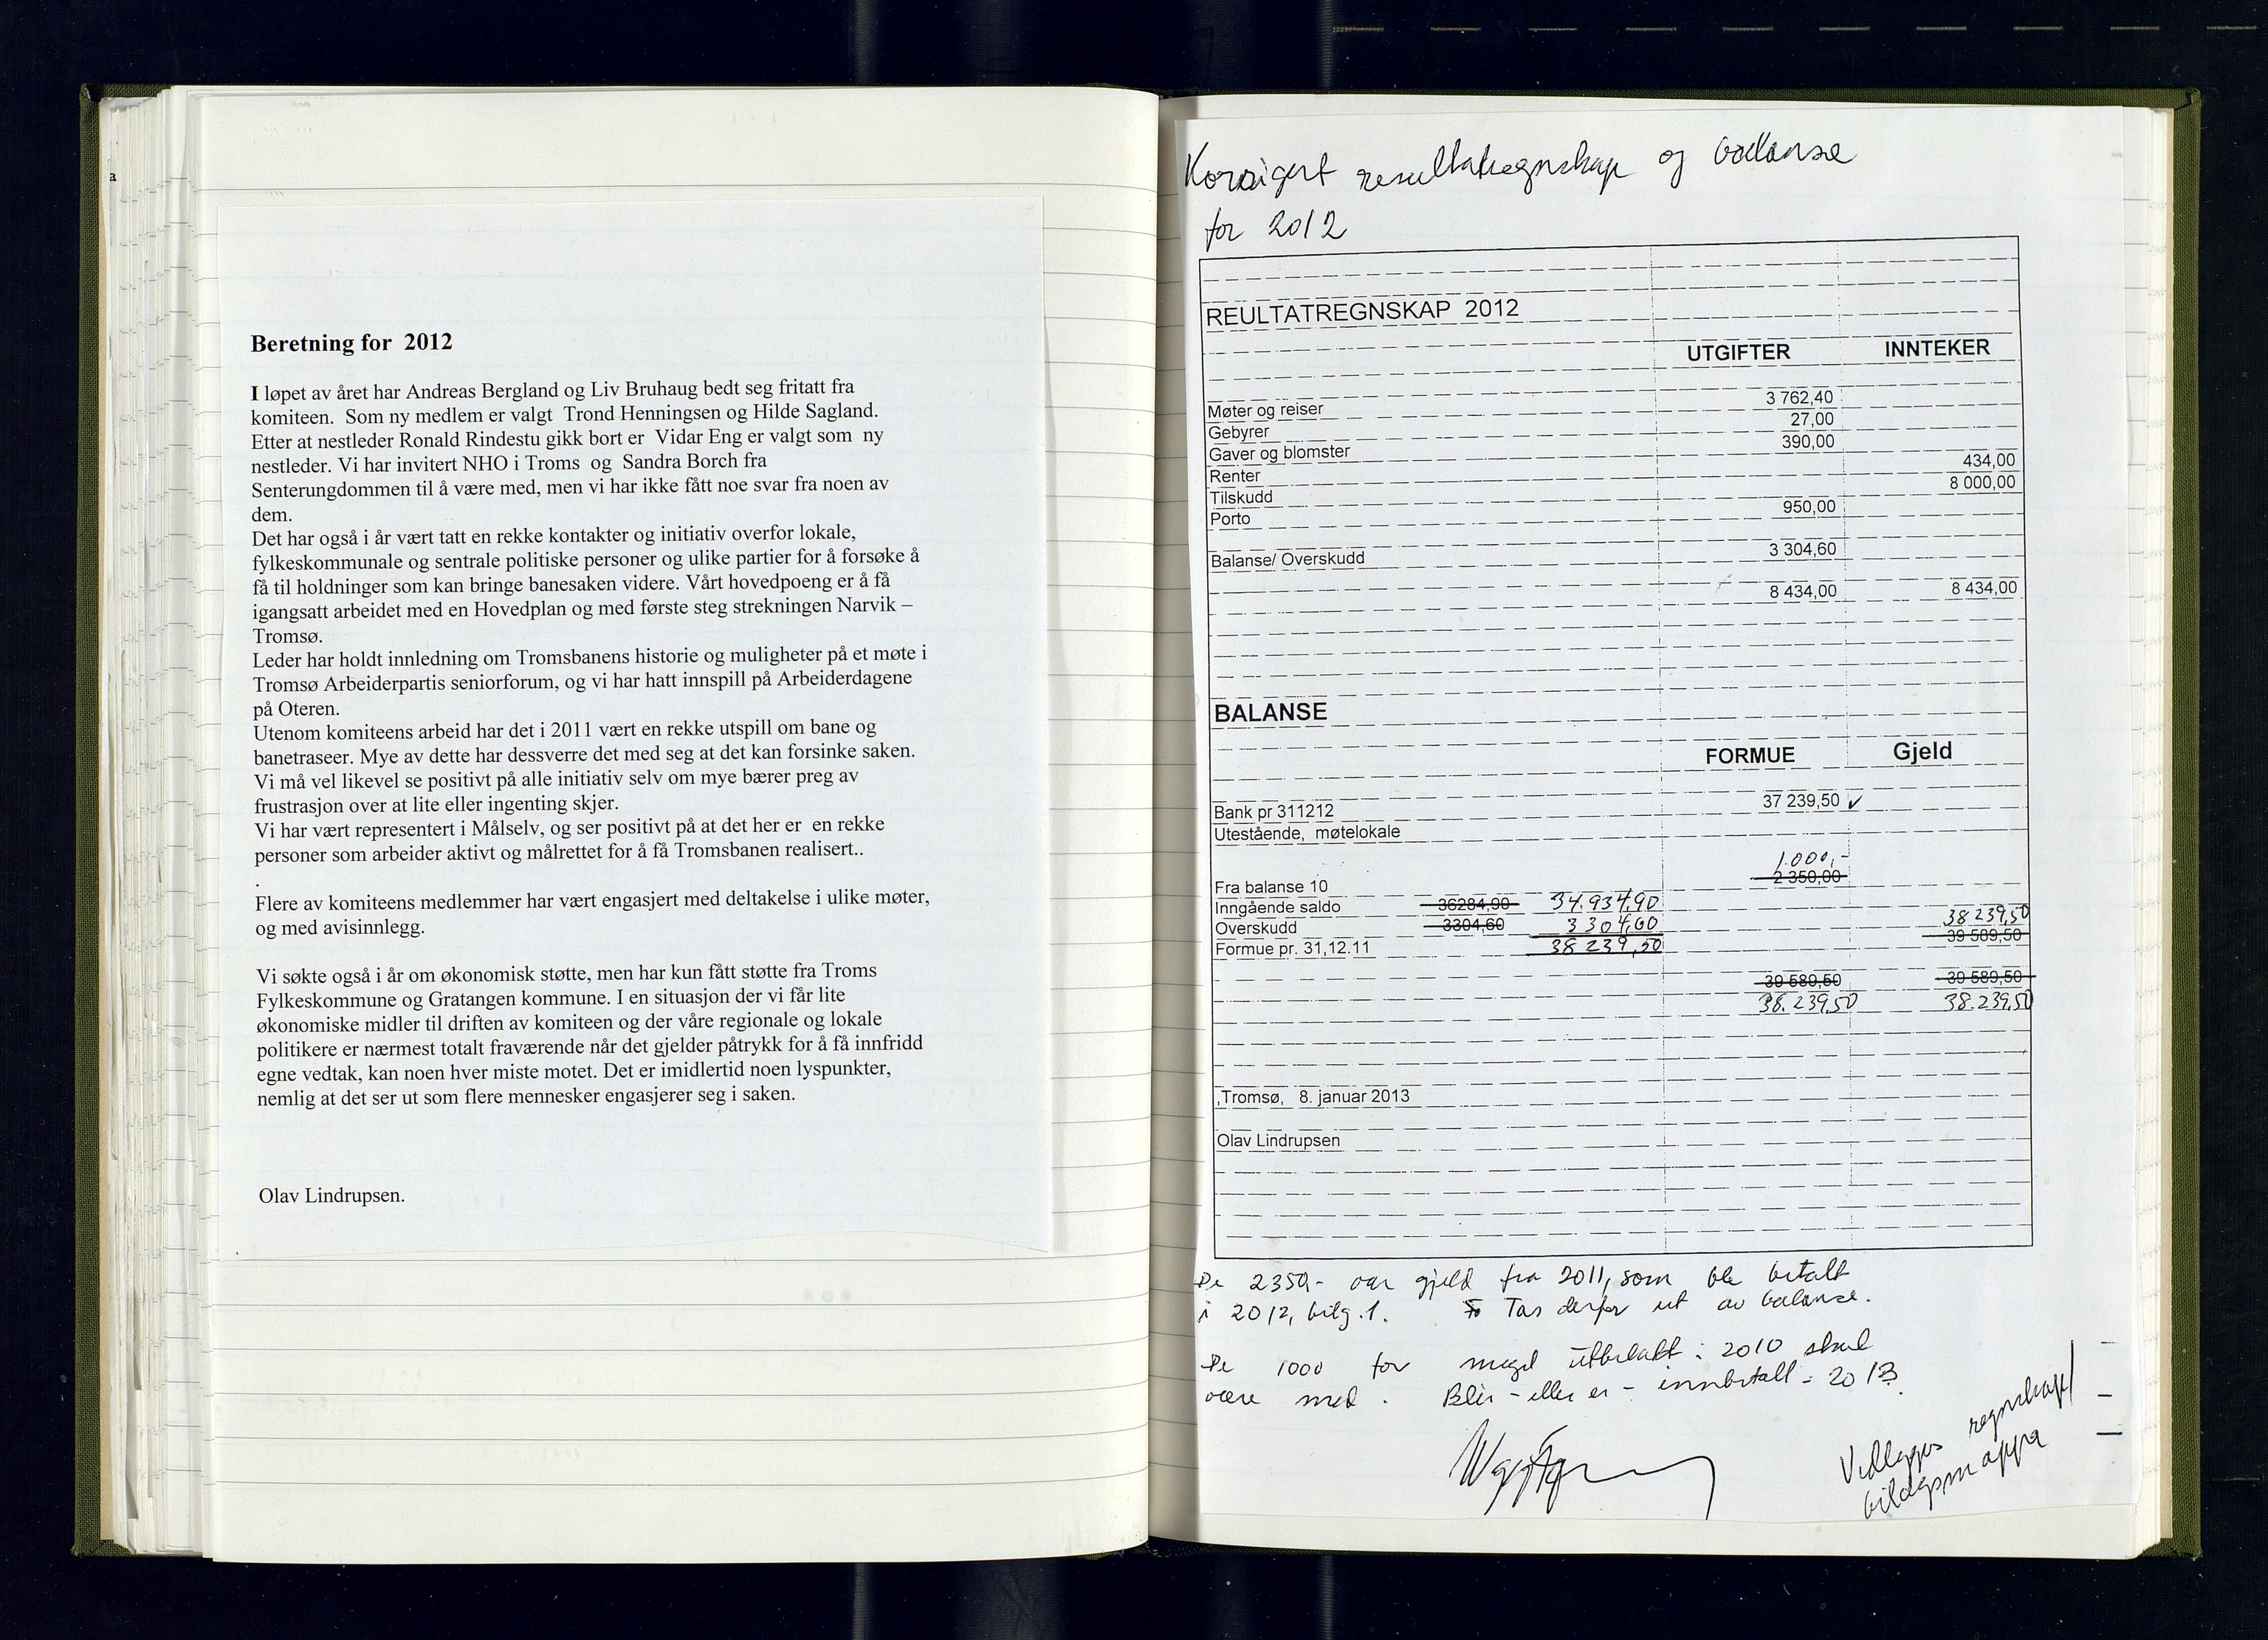 a
Beretning for 2012
I løpet av året har Andreas Bergland og Liv Bruhaug bedt seg fritatt fra
komiteen. Som ny medlem er valgt Trond Henningsen og Hilde Sagland.
Etter at nestleder Ronald Rindestu gikk bort er Vidar Eng er valgt som ny
nestleder. Vi har invitert NHO i Troms og Sandra Borch fra
Senterungdommen til å være med, men vi har ikke fått noe svar fra noen av
dem.
Det har også i år vært tatt en rekke kontakter og initiativ overfor lokale,
fylkeskommunale og sentrale politiske personer og ulike partier for å forsøke å
få til holdninger som kan bringe banesaken videre. Vårt hovedpoeng er å få
igangsatt arbeidet med en Hovedplan og med første steg strekningen Narvik –
Tromsø.
Leder har holdt innledning om Tromsbanens historie og muligheter på et møte i
Tromsø Arbeiderpartis seniorforum, og vi har hatt innspill på Arbeiderdagene
på Oteren.
Utenom komiteens arbeid har det i 2011 vært en rekke utspill om bane og
banetraseer. Mye av dette har dessverre det med seg at det kan forsinke saken.
Vi må vel likevel se positivt på alle initiativ selv om mye bærer preg av
frustrasjon over at lite eller ingenting skjer.
Vi har vært representert i Målselv, og ser positivt på at det her er en rekke
personer som arbeider aktivt og målrettet for å få Tromsbanen realisert..
.
Flere av komiteens medlemmer har vært engasjert med deltakelse i ulike møter,
og med avisinnlegg.
Vi søkte også i år om økonomisk støtte, men har kun fått støtte fra Troms
Fylkeskommune og Gratangen kommune. I en situasjon der vi får lite
økonomiske midler til driften av komiteen og der våre regionale og lokale
politikere er nærmest totalt fraværende når det gjelder påtrykk for å få innfridd
egne vedtak, kan noen hver miste motet. Det er imidlertid noen lyspunkter,
nemlig at det ser ut som flere mennesker engasjerer seg i saken.
Olav Lindrupsen.
Korrigert resultatregnskap og balanse
for 2012
REULTATREGNSKAP 2012
UTGIFTER INNTEKER
Møter og reiser 3 762,40
Gebyrer 27,00
Gaver og blomster 390,00
Renter 434,00
Tilskudd 8 000,00
Porto 950,00
Balanse/ Overskudd 3 304,60
8 434,00 8 434,00
BALANSE
FORMUE Gjeld
Bank pr 311212 37 239,50 ✓
Utestående, møtelokale
1.000,-
Fra balanse 10 2 350,00
Inngående saldo 36284,90 34.934,90
Overskudd 3304,60 3 304,60 38 239,50
Formue pr. 31,12.11 38 239,50 39 589,50
39 589,50 39 589,50
38.239,50 38.239,50
,Tromsø, 8. januar 2013
Olav Lindrupsen
De 2350,- var gjeld fra 2011, som ble betalt
i 2012, bilg. 1. Tas derfor ut av balanse.
De 1000 for meget utbetalt i 2010 skal
være med. Blir - eller er - innbetalt i 2013.
Vedlegges regnskap/
bilagsmappa